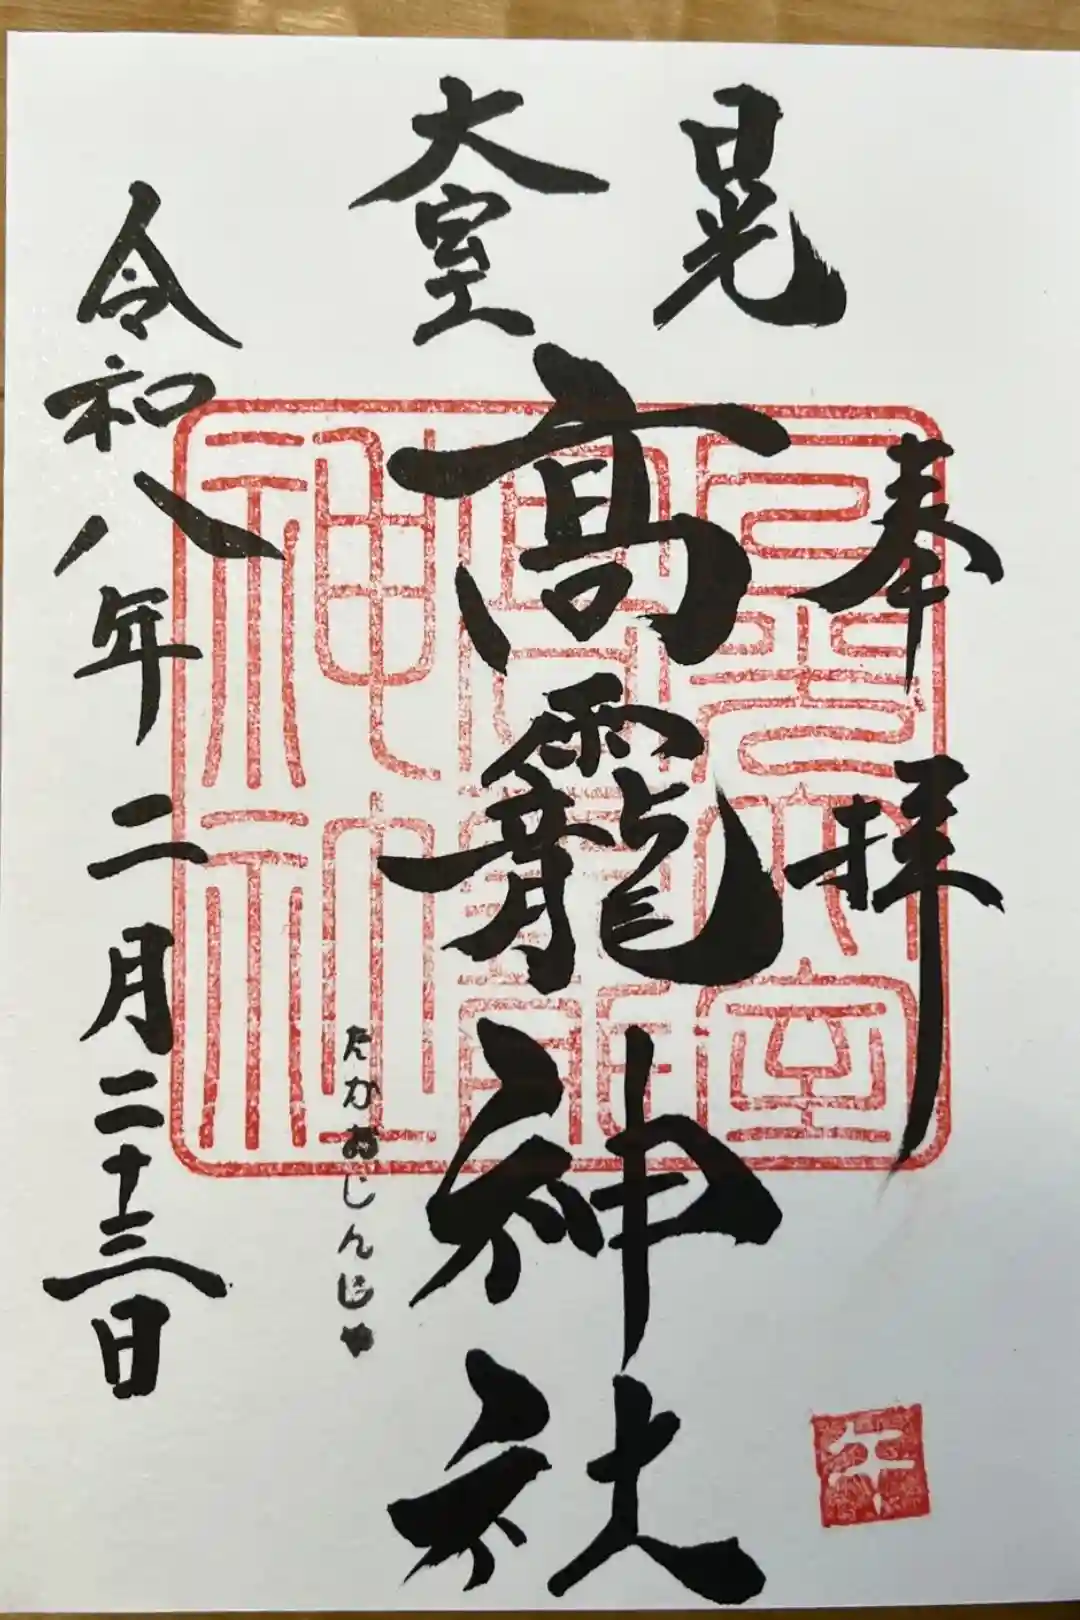 晃
奉拝
大室
髙龗神社
たかおじんじゃ
令和八年二月二十三日
日光大室
高龗
神社
午